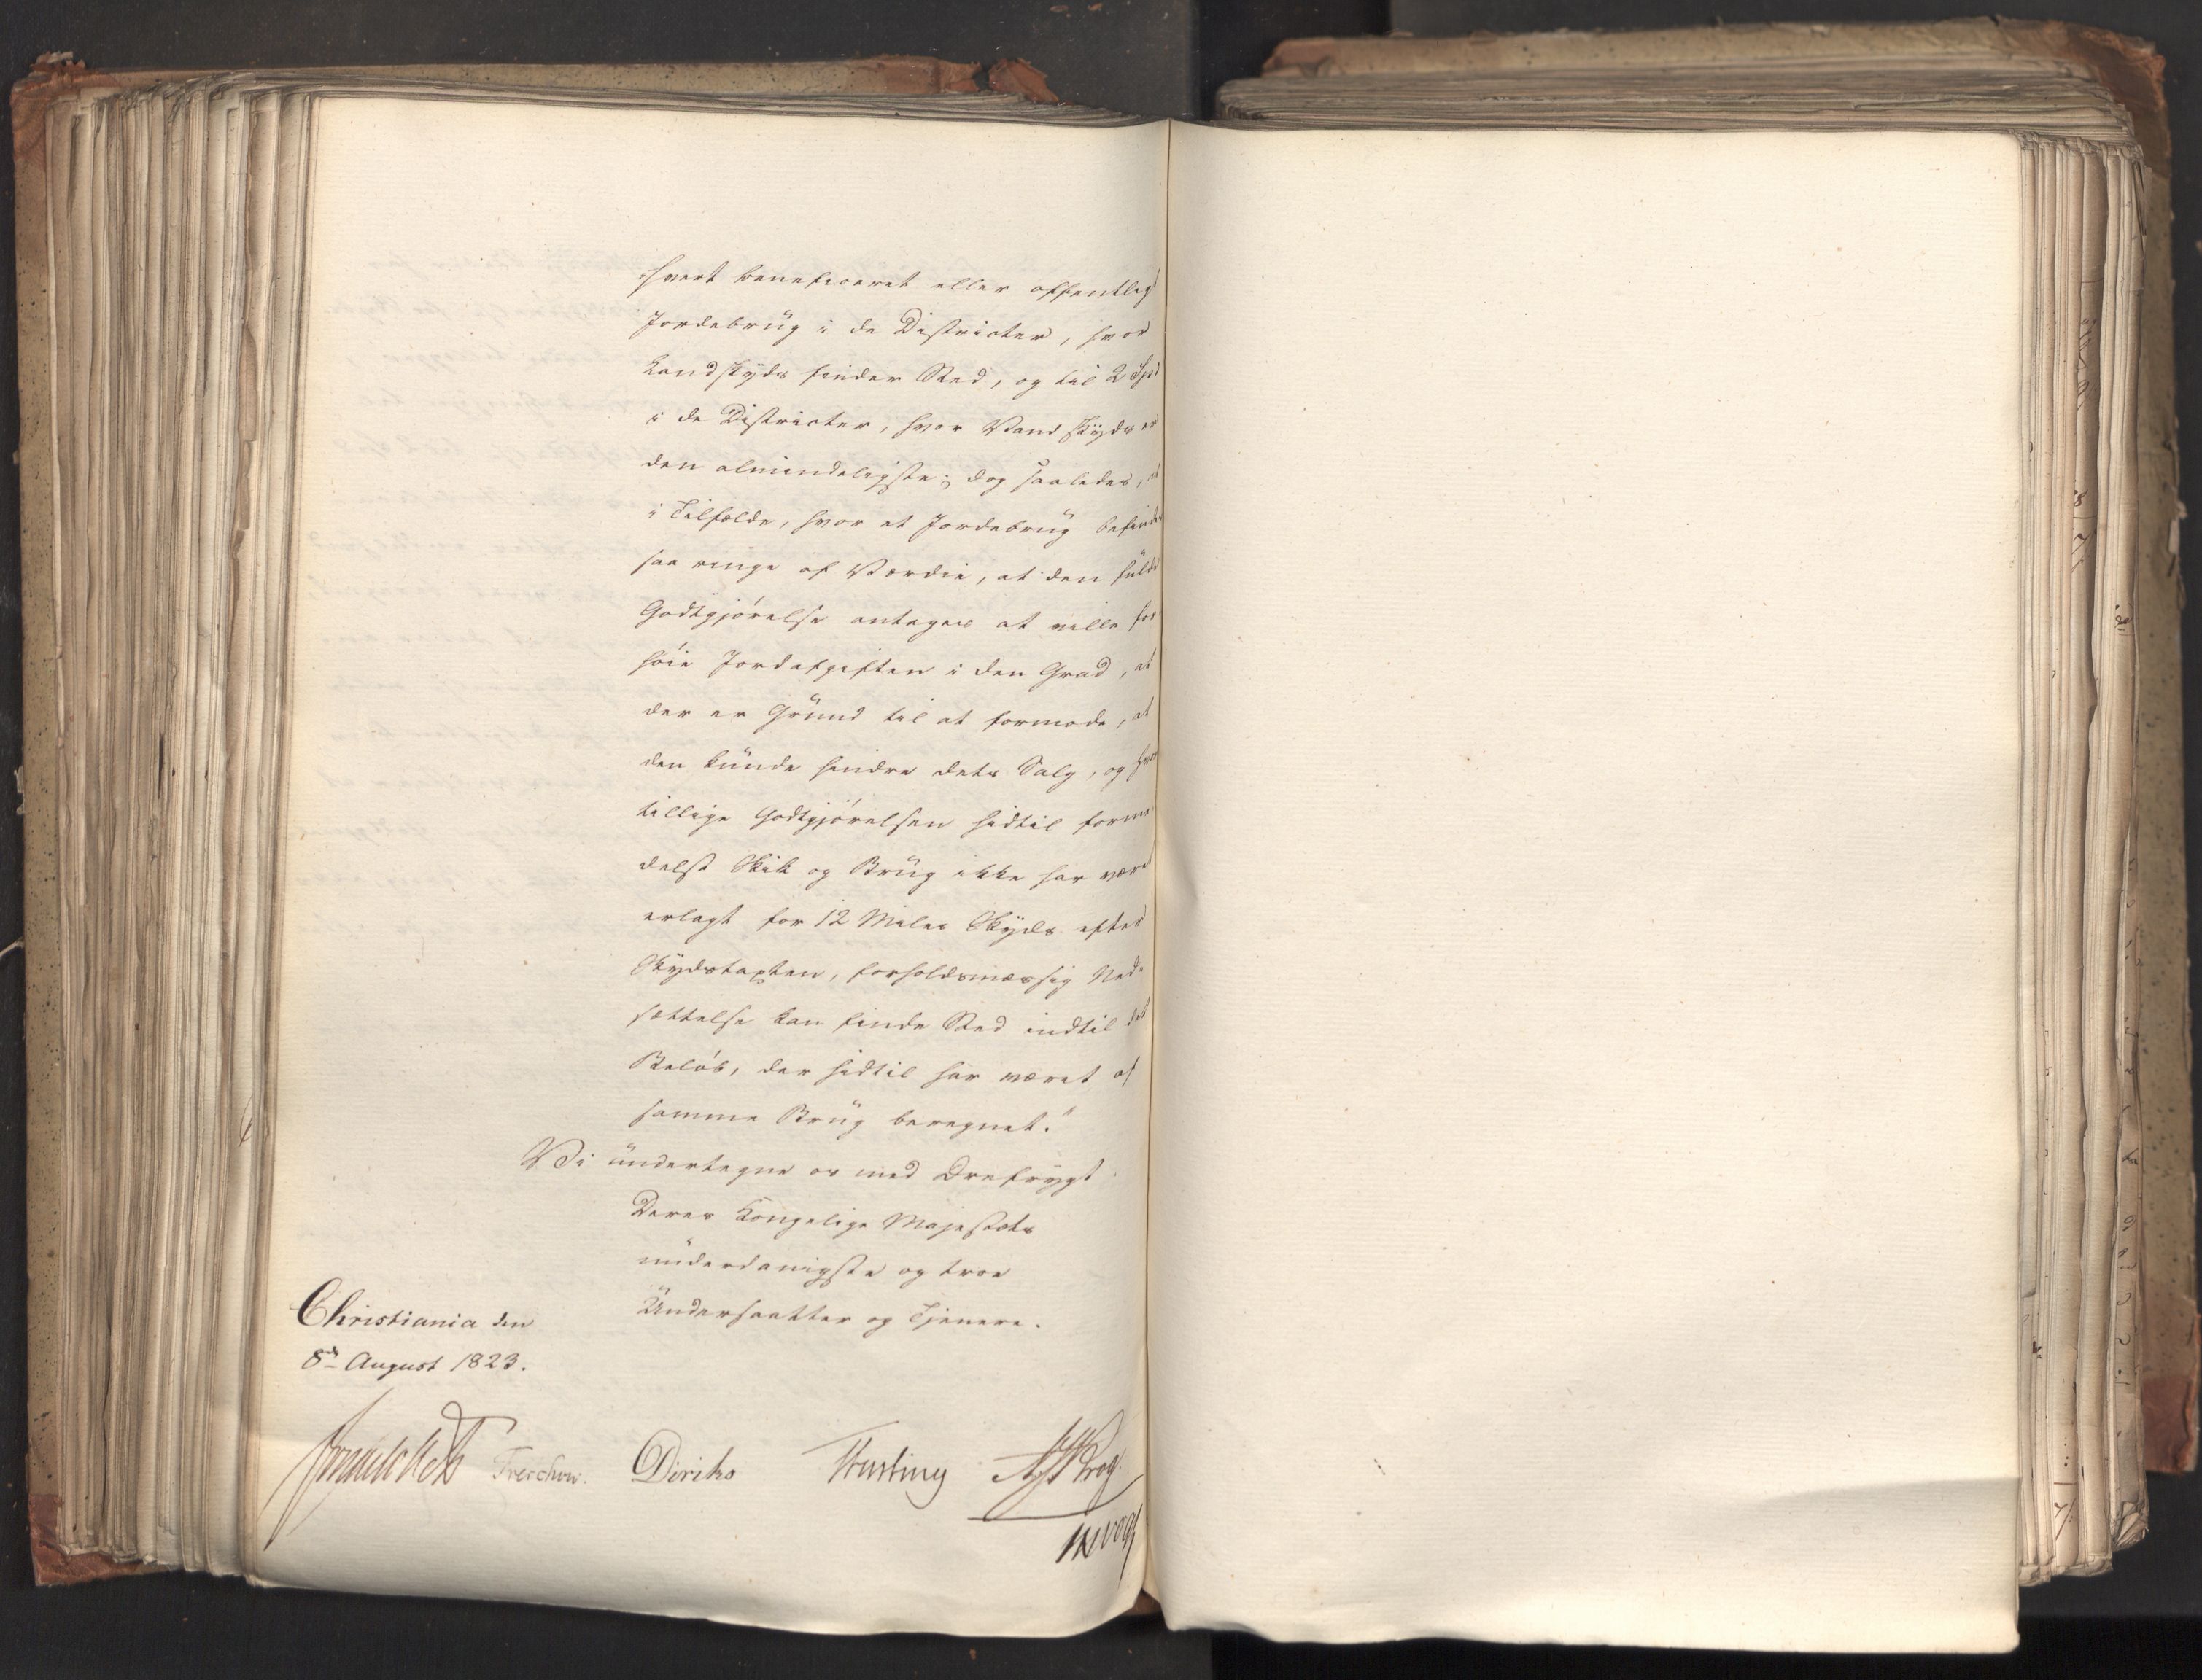 hvert beneficeret eller offentligt
Jordebrug i de Districter, hvor
Landskyds finder Sted, og til 2 Spd
i de Districter, hvor Vandskyds er
den almindeligste; dog saaledes, at
i Tilfælde, hvor et Jordebrug befindes
saa ringe af Værdie, at den fulde
Godtgjørelse antages at ville for-
høie Jordafgiften i den Grad, at
der er Grund til at formode, at
den kunde hindre dets Salg, og hvor
tillige Godtgjørelsen hidtil forme-
delst Skik og Brug ikke har været
erlagt for 12 Miles Skyds efter
Skydstaxten, forholdsmæssig Ned-
sættelse kan finde Sted indtil det
Beløb, der hidtil har været af
samme Brug beregnet."
Vi undertegne os med Ærefrygt
Deres Kongelige Majestæts
underdanigste og troe
Undersaatter og Tjenere.
Christiania den
8de August 1823.
Treschow. Diriks